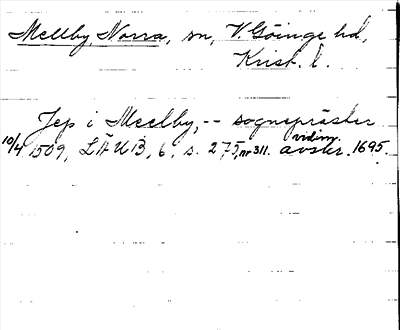 Mellby, Norra, sn, V Göinge hd,
Krist. l.
Jep i Meelby, -- sognepräster
vidim.
10/4 1509, LÄUB, 6, s. 275, nr 311. avskr. 1695.